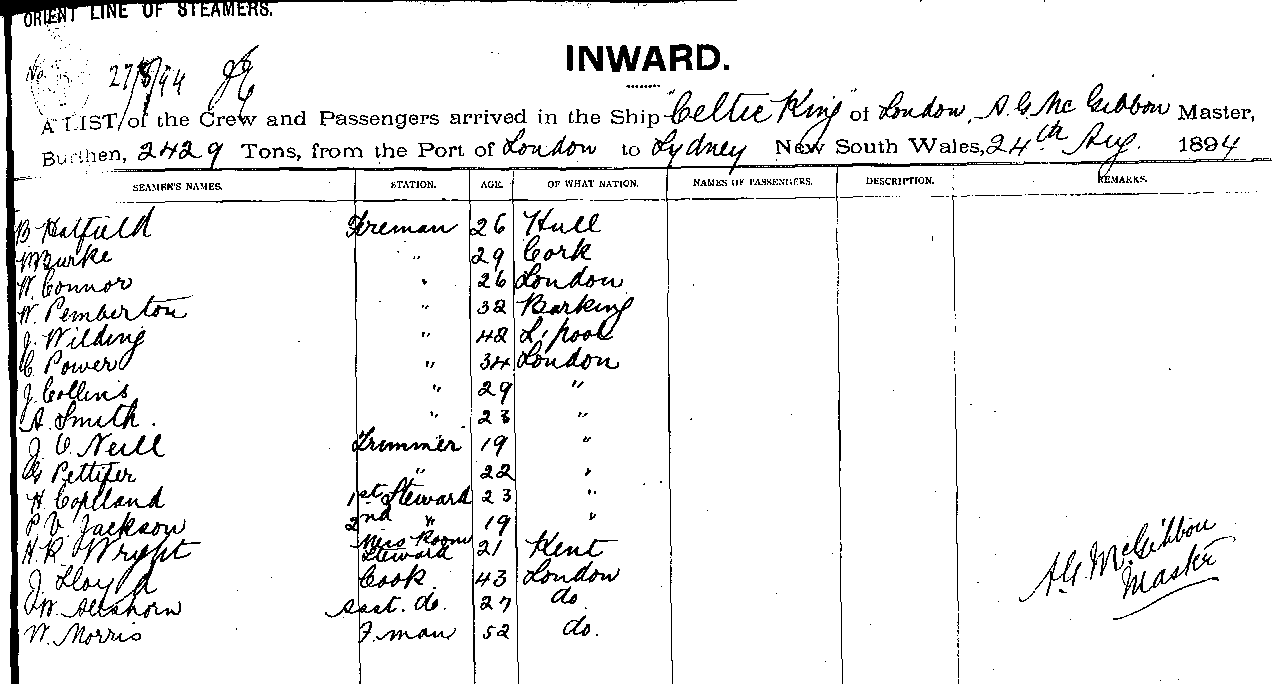 ORIENT LINE OF STEAMERS.
INWARD.
No. 27/8/94
A LIST of the Crew and Passengers arrived in the Ship "Celtic King" of London, A. G. McGibbon Master,
Burthen, 2429 Tons, from the Port of London to Sydney New South Wales, 24th Aug. 1894
SEAMEN'S NAMES. STATION. AGE. OF WHAT NATION. NAMES OF PASSENGERS. DESCRIPTION. REMARKS.
B. Hatfield Fireman 26 Hull
M Burke " 29 Cork
W. Connor " 26 London
W. Pemberton " 32 Barking
J. Wilding " 42 L'pool
C. Power " 34 London
J. Collins " 29 "
A. Smith. " 23 "
J. O. Neill Trimmer 19 "
G Pettifer " 22 "
H. Copeland 1st Steward 23 "
P. V. Jackson 2nd " 19 "
H. R. Wright Mess Room Steward 21 Kent
J. Lloyd Cook 43 London
J. W. Asst. do. 27 do
W. Morris F.man 52 do.
A. G. McGibbon
Master